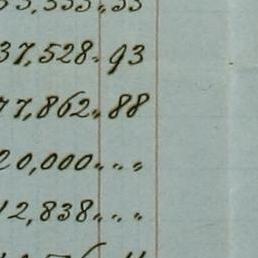 37,528. 93
77,862. 88
20,000. „ „
12,838. „ „